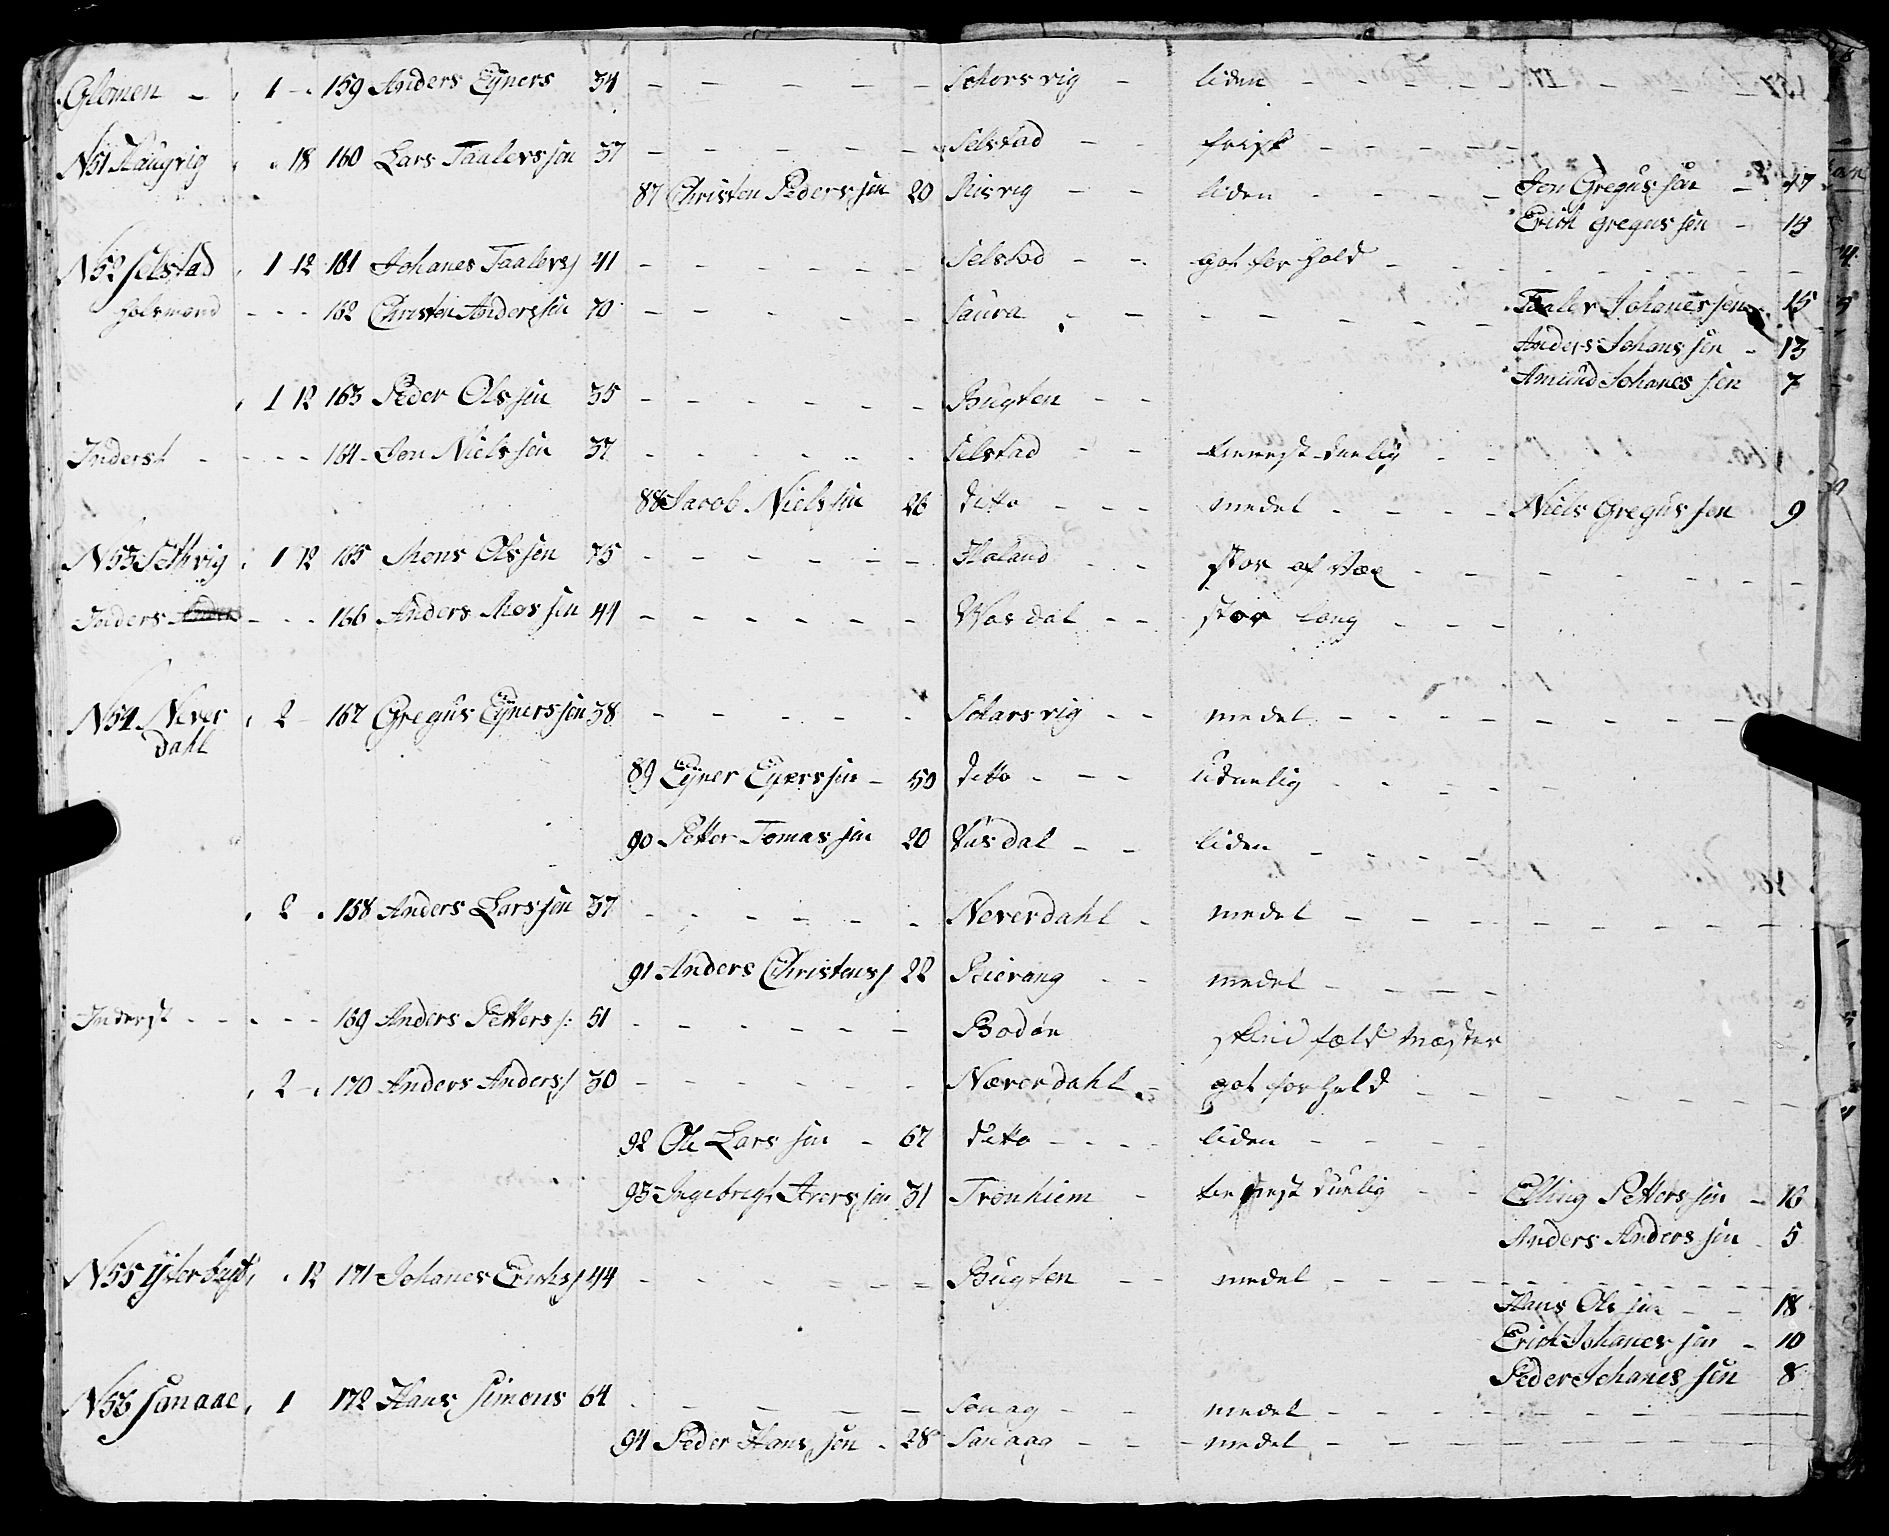 Glomen - 1 - 159 Anders Eÿners 34 - - - - - - Schorsvig - liden - - - -
N51 Haugvig 18 160 Lars Taalerssøn 37 - - - - - - Selstad - - frisk - - - -
87 Christen Pederssøn 20 Risvig - - liden - - - - Jon Gregussøn - 17
Erich Gregussøn - 13
N52 Selstad 1 12 161 Johanes Taalers 41 - - - - - - Selstad - - got forhold - - - -
Holsmand - - - 162 Christen Anderssøn 70 - - - - - - Saura - - - - - - - Taaler Johanessøn 15
Anders Johanssøn - 13
1 12 163 Peder Olssøn 35 - - - - - - Bugten - - Amund Johanessøn 7
Inderst - - - - 164 Jon Nielssøn 37 - - - - - - Selstad - - tienest duelig - -
88 Jacob Nielssøn 26 ditto - - - medel - - - - Niels Gregussøn 9
N53 Sethvig 1 12 165 Mons Olssøn 75 - - - - - - Haland - - stor af Væx - - - -
Inders - - - 166 Anders Mossøn 44 - - - - - - Wasdal - - stor lang - - -
N54 Never 2 - 167 Gregus Eÿnerssøn 38 - - - - - Scharsvig - - medel - - - - - -
dahl
89 Eÿner Eÿnerssøn - 50 ditto - - - uduelig - - - -
90 Petter Tomassøn 20 Vasdal - - liden - - - -
2 168 Anders Larssøn 37 - - - - - - Neverdahl - medel - - - - - -
91 Anders Christens 22 - - medel - - - -
Inderst - - - - - 169 Anders Petters 51 - - - - - - Bodøn skind fæld Mæster
2 - 170 Anders Anders 30 - - - - - - Næverdahl - got forhold - - - -
92 Ole Larssøn - 67 ditto - - - - liden - - - -
93 Ingebregt Arerssøn 31 Tronhiem - tienest duelig - - Elling Petterssøn - 16
Anders Anderssøn 5
N55 12 171 Johanes Erichs 44 - - - - - - Bugten - - medel - - - - - -
Hans Olssøn - - 18
Erich Johanessøn - 10
Peder Johanessøn 8
N56 Sanaae 1 172 Hans Simons 64 - - - - - - Sonag - - medel - - - - - -
94 Peder Hanssøn - 28 Sanaag - - - medel - - - - - -